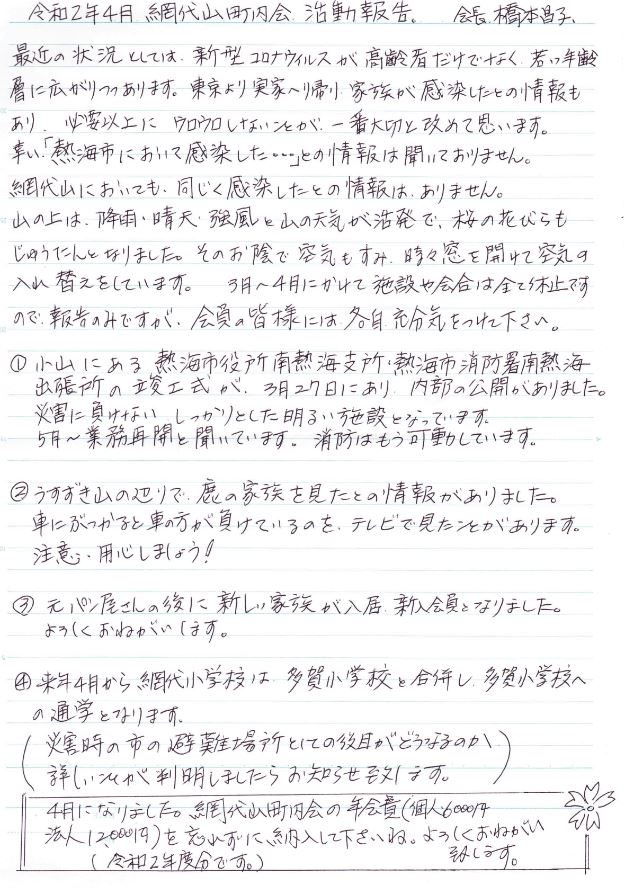 令和2年4月 網代山町内会 活動報告。 会長 橋本昌子、
最近の状況としては、新型コロナウイルスが高齢者だけでなく、若い年齢
層に広がりつつあります。東京より実家へ帰り、家族が感染したとの情報も
あり、必要以上に ウロウロしないことが、一番大切と改めて思います。
幸い、「熱海市において感染した・・・」との情報は聞いておりません。
網代山においても、同じく感染したとの情報は、ありません。
山の上は、降雨・晴天・強風と山の天気が活発で、桜の花びらも
じゅうたんとなりました。そのお陰で空気もすみ、時々窓を開けて空気の
入れ替えをしています。 3月～4月にかけて施設や会合は全て休止です
ので、報告のみですが、会員の皆様には、各自充分気をつけて下さい。
① 小山にある 熱海市役所南熱海支所・熱海市消防署南熱海
出張所の竣工式が、3月27日にあり、内部の公開がありました。
災害に負けない しっかりとした明るい施設となっています。
5月～業務再開と聞いています。消防はもう可動しています。
② うすずき山の辺りで、鹿の家族を見たとの情報がありました。
車にぶつかると車の方が負けているのを、テレビで見たことがあります。
注意、用心しましょう!
③ 元パン屋さんの後に新しい家族が入居、新入会員となりました。
よろしくおねがいします。
④ 来年4月から網代小学校は、多賀小学校と合併し、多賀小学校へ
の通学となります。
(災害時の市の避難場所としての役目がどうなるのか
詳しいことが判明しましたらお知らせ致します。)
4月になりました。網代山町内会の年会費(個人6000円
法人12,000円)を忘れずに納入して下さいね。よろしくおねがい
致します。
(令和2年度分です。)